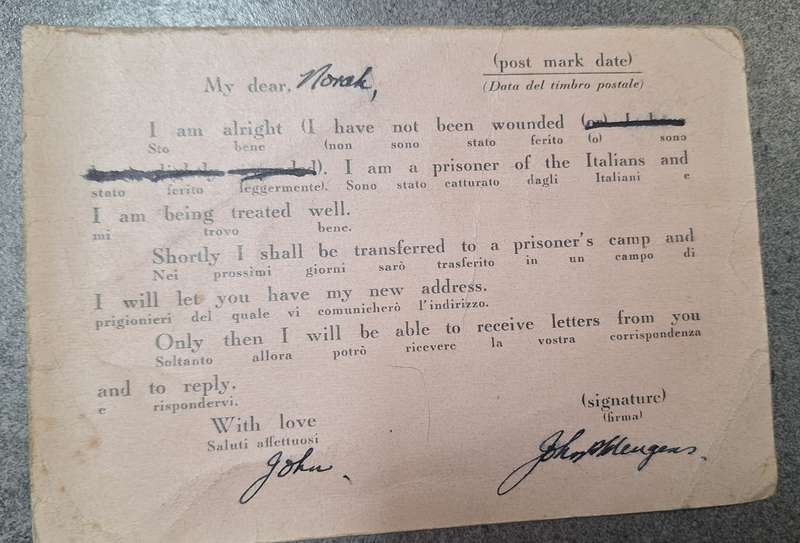 (post mark date)
My dear, Norah,
(Data del timbro postale)
I am alright (I have not been wounded
Sto bene (non sono stato ferito (o) sono
). I am a prisoner of the Italians and
stato ferito leggermente). Sono stato catturato dagli Italiani e
I am being treated well.
mi trovo bene.
Shortly I shall be transferred to a prisoner's camp and
Nei prossimi giorni sarò trasferito in un campo di
I will let you have my new address.
prigionieri del quale vi comunicherò l'indirizzo.
Only then I will be able to receive letters from you
Soltanto allora potrò ricevere la vostra corrispondenza
and to reply.
e rispondervi.
With love
Saluti affettuosi
(signature)
(firma)
John.
John